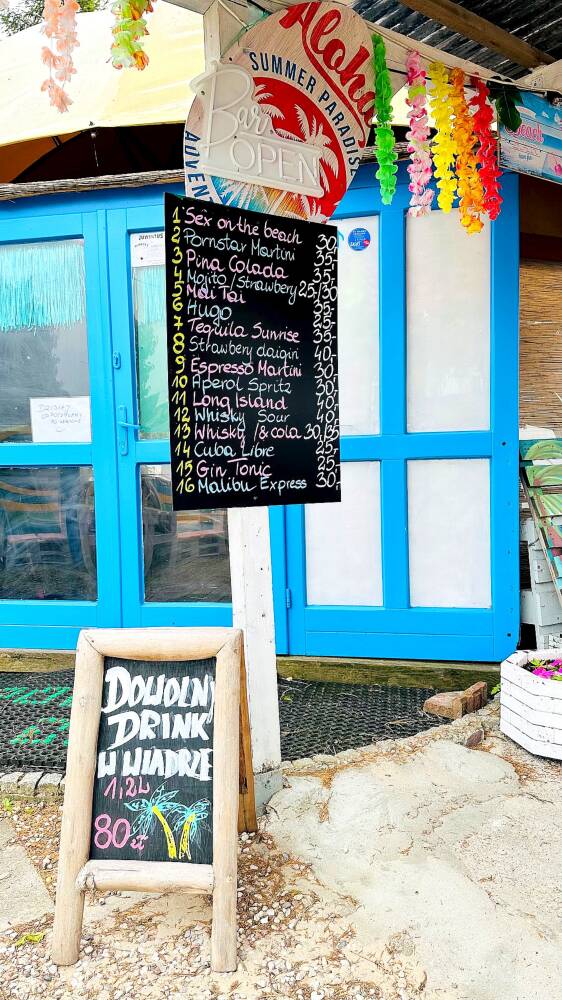 Aloha
SUMMER PARADISE
ADVEN
Bar
OPEN
Beach
JUVENTUS
1 Sex on the beach 30,-
2 Pornstar Martini 35,-
3 Pina Colada 35,-
4 Mojito / Strawbery 25,/30
5 Mai Tai 35,-
6 Hugo 25,-
7 Tequila Sunrise 35,-
8 Strawbery daigiri 40,-
9 Espresso Martini 30,-
10 Aperol Spritz 30,-
11 Long Island 40,-
12 Whisky Sour 40,-
13 Whisky /& cola 30,/35
14 Cuba Libre 25,-
15 Gin Tonic 25,-
16 Malibu Express 30,-
DOWOLNY
DRINK
W WIADRZE
1,2L
80 zł